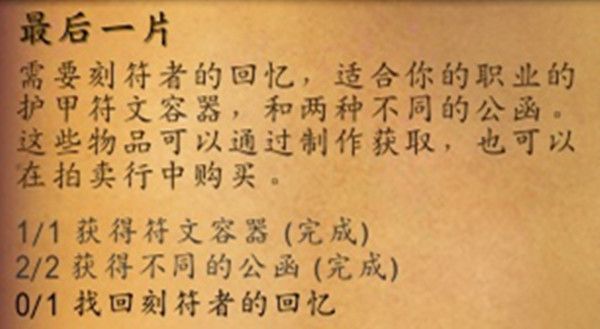 最后一片
需要刻符者的回忆，适合你的职业的
护甲符文容器，和两种不同的公函。
这些物品可以通过制作获取，也可以
在拍卖行中购买。
1/1 获得符文容器 (完成)
2/2 获得不同的公函 (完成)
0/1 找回刻符者的回忆